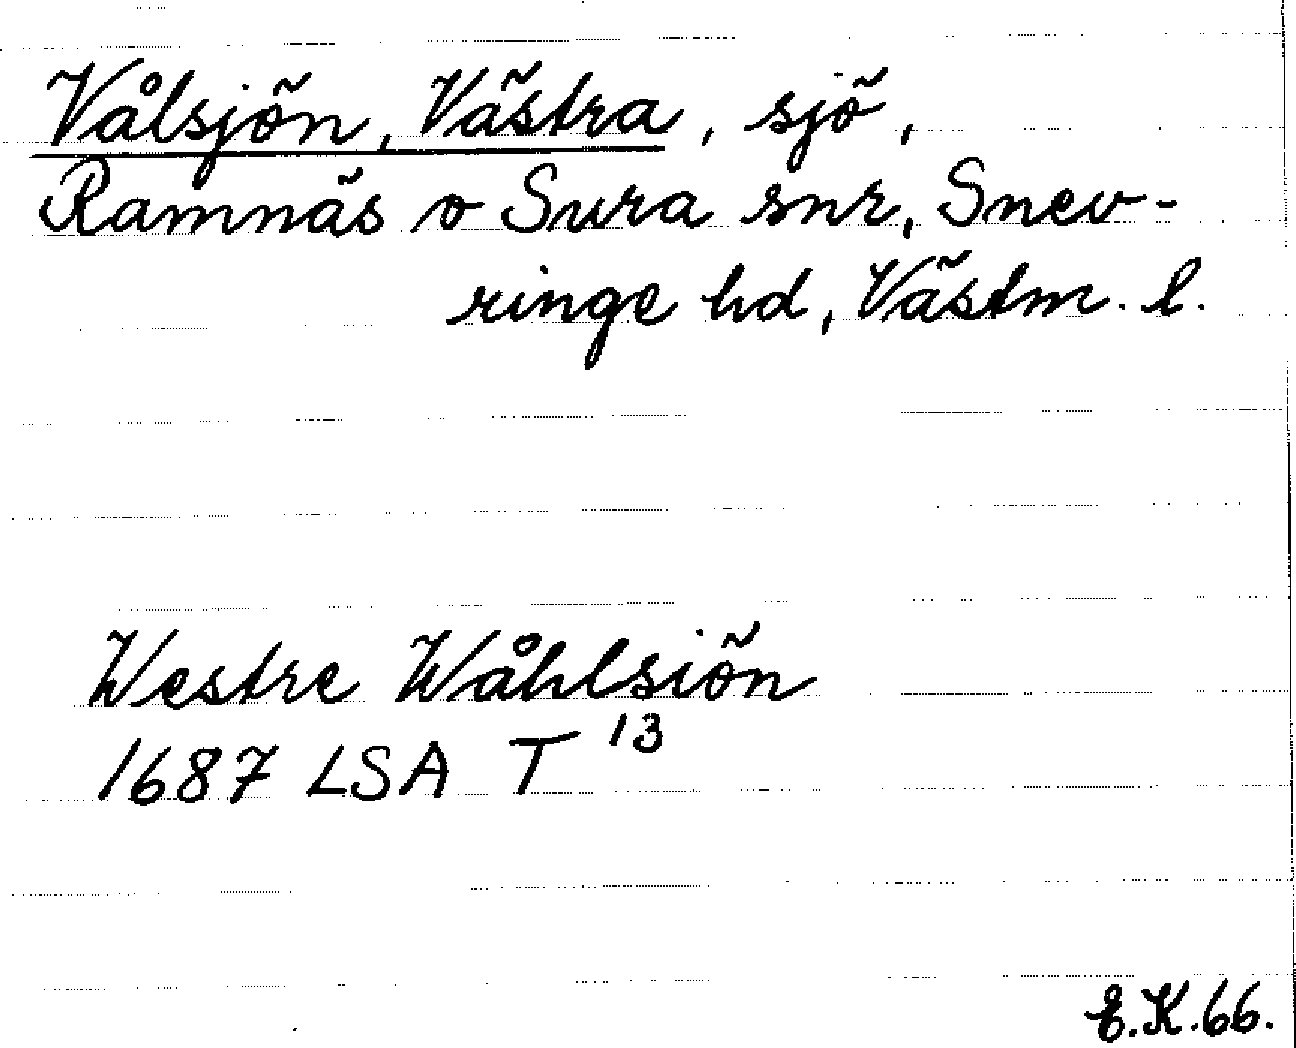 Vålsjön, Västra, sjö,
Ramnäs o Sura snr, Snev-
ringe hd, Västm. l.
Westre Wåhlsiön
1687 LSA T 13
E.K.66.